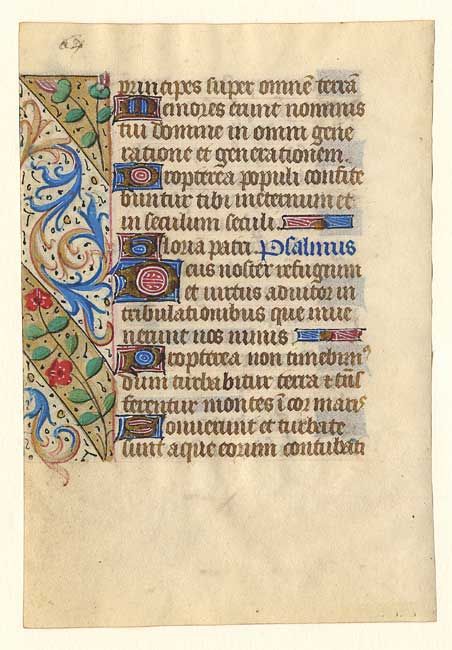 principes super omnē terrā
Memores erunt nominis
tui domine in omni gene
ratione et generationem.
Propterea populi confite
buntur tibi ineternum et
in seculum seculi
Gloria patri Psalmus
Deus noster refugium
et virtus adiutor in
tribulationibus que inue
nerunt nos nimis
Propterea non timebimꝰ
dum turbabitur terra ⁊ trās
ferentur montes ī cor maris
Sonuerunt et turbate
sunt aque eorum conturbati